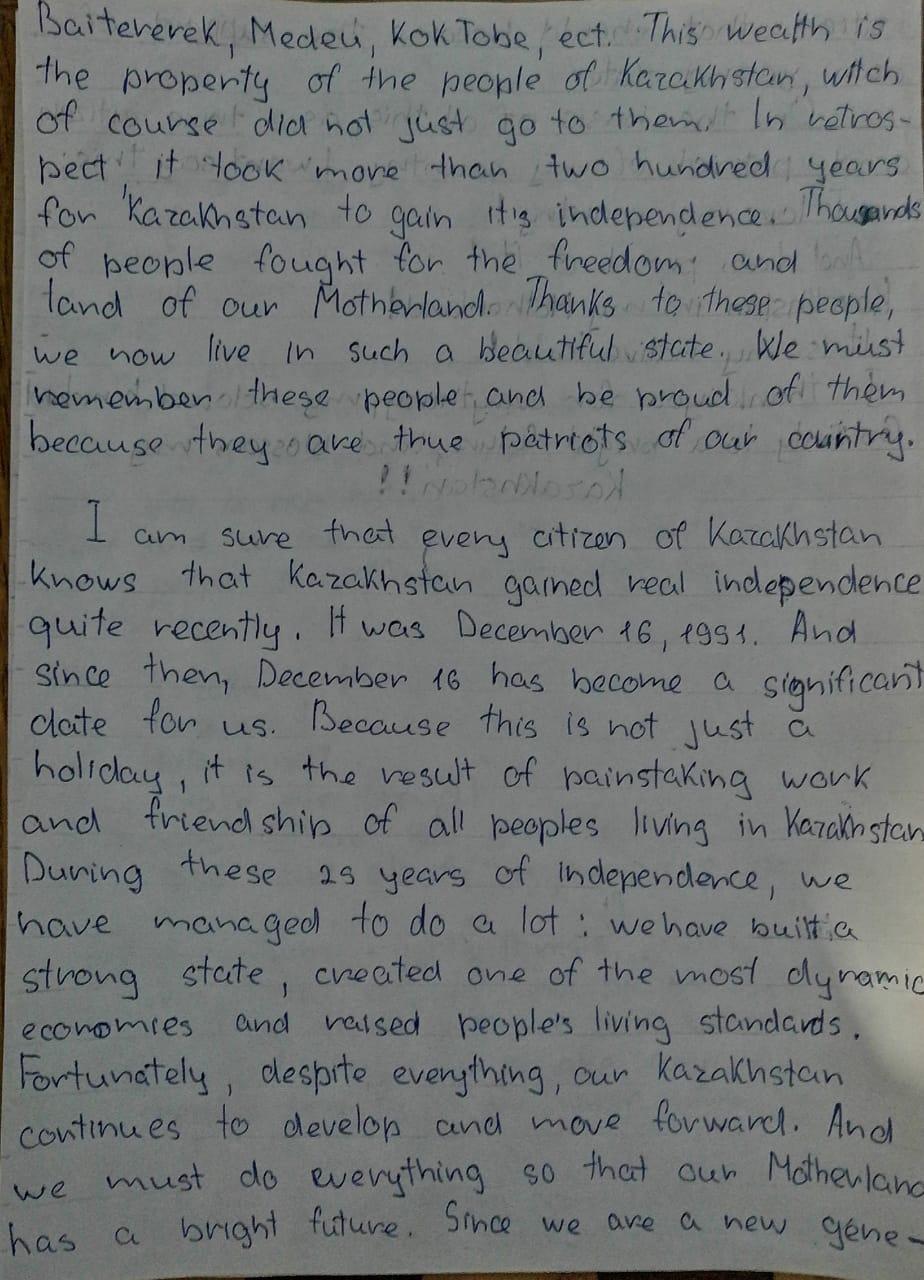 Baitererek, Medeu, Kok Tobe, ect. This wealth is
the property of the people of Kazakhstan, witch
of course did not just go to them. In retros-
pect, it took more than two hundred years
for Kazakhstan to gain it's independence. Thousands
of people fought for the freedom and
land of our Motherland. Thanks to these people,
we now live in such a beautiful state. We must
remember these people and be proud of them
because they are thue patriots of our country.
I am sure that every citizen of Kazakhstan
knows that Kazakhstan gained real independence
quite recently. It was December 16, 1991. And
since then, December 16 has become a significant
date for us. Because this is not just a
holiday, it is the result of painstaking work
and friendship of all peoples living in Kazakhstan
During these 29 years of independence, we
have managed to do a lot: we have built a
strong state, created one of the most dynamic
economies and raised people's living standards.
Fortunately, despite everything, our Kazakhstan
continues to develop and move forward. And
we must do everything so that our Motherland
has a bright future. Since we are a new gene-